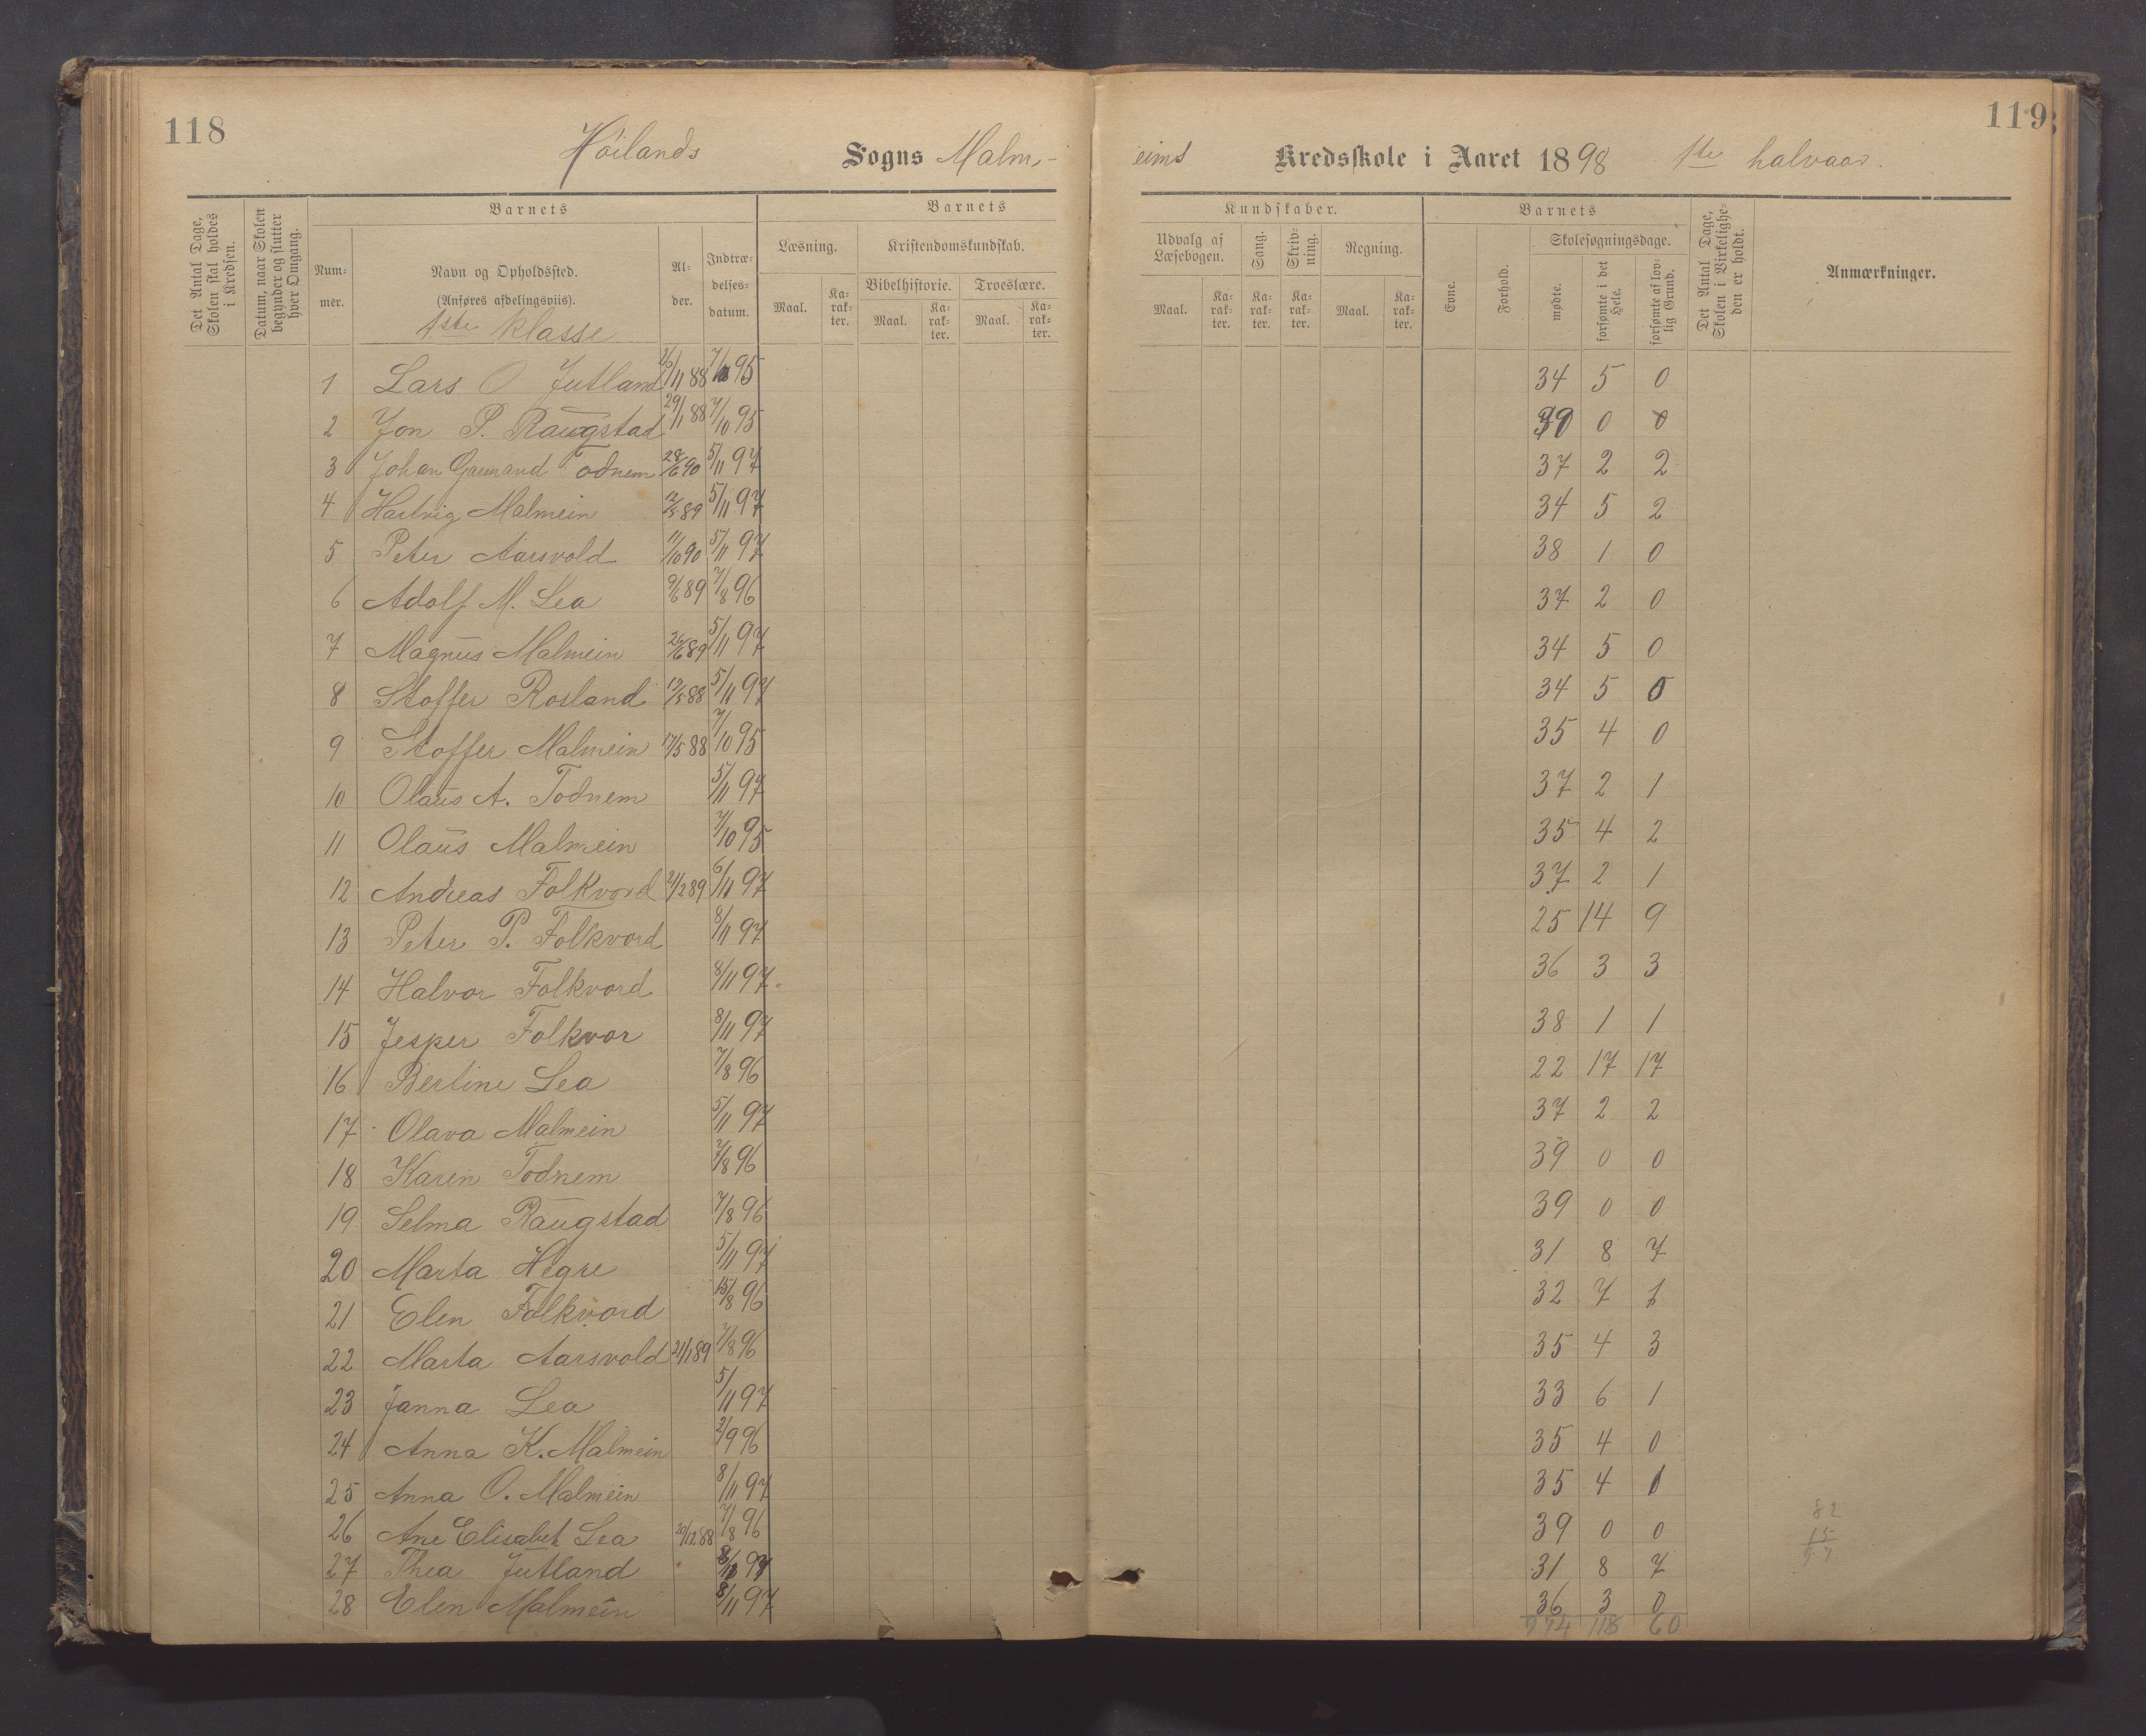 118
119
Höilands Sogns Malm-
eims Kredsskole i Aaret 1898 1ste halvaar.
Det Antal Dage, Skolen skal holdes i Kredsen.
Datum, naar Skolen begynder og slutter hver Omgang.
Barnets
Num-
mer.
Navn og Opholdssted.
(Anføres afdelingsviis).
1ste klasse
Al-
der.
Indtræ-
delses-
datum.
Barnets
Læsning.
Maal.
Ka-
rak-
ter.
Kristendomskundskab.
Bibelhistorie.
Maal.
Ka-
rak-
ter.
Troeslære.
Maal.
Ka-
rak-
ter.
Kundskaber.
Udvalg af
Læsebogen.
Maal.
Ka-
rak-
ter.
Sang.
Ka-
rak-
ter.
Skriv-
ning.
Ka-
rak-
ter.
Regning.
Maal.
Ka-
rak-
ter.
Barnets
Evne.
Forhold.
Skolesøgningsdage.
mødte.
forsømte i det Hele.
forsømte af lov-
lig Grund.
Det Antal Dage, Skolen i Virkelighe-
den er holdt.
Anmærkninger.
1 Lars O Jutland 26/11 88 7/10 95 34 5 0
2 Jon P. Raugstad 29/1 88 7/10 95 39 0 0
3 Johan Gaumand Todnem 28/6 90 5/11 97 37 2 2
4 Hartvig Malmein 12/5 89 5/11 97 34 5 2
5 Peter Aarsvold 11/10 90 5/11 97 38 1 0
6 Adolf M. Lea 9/6 89 7/8 96 37 2 0
7 Magnus Malmein 26/6 89 5/11 97 34 5 0
8 Stoffer Rosland 12/5 88 5/11 97 34 5 0
9 Stoffer Malmein 17/5 88 7/10 95 35 4 0
10 Olaus A. Todnem 5/11 97 37 2 1
11 Olaus Malmein 7/10 95 35 4 2
12 Andreas Folkvord 21/2 89 6/11 97 37 2 1
13 Peter P. Folkvord 8/11 97 25 14 9
14 Halvor Folkvord 8/11 97 36 3 3
15 Jesper Folkvor 8/11 97 38 1 1
16 Bertine Lea 7/8 96 22 17 17
17 Olava Malmein 5/11 97 37 2 2
18 Karen Todnem 7/8 96 39 0 0
19 Selma Raugstad 7/8 96 39 0 0
20 Marta Hegre 5/11 97 31 8 7
21 Elen Folkvord 15/8 96 32 7 1
22 Marta Aarsvold 21/1 89 7/8 96 35 4 3
23 Janna Lea 5/11 97 33 6 1
24 Anna K. Malmein 2/9 96 35 4 0
25 Anna O. Malmein 8/11 97 35 4 1
26 Ane Elisabet Lea 20/12 88 7/8 96 39 0 0
27 Thea Jutland 8/11 97 31 8 7
28 Elen Malmein 8/11 97 36 3 0
974 118 60
82
15
97